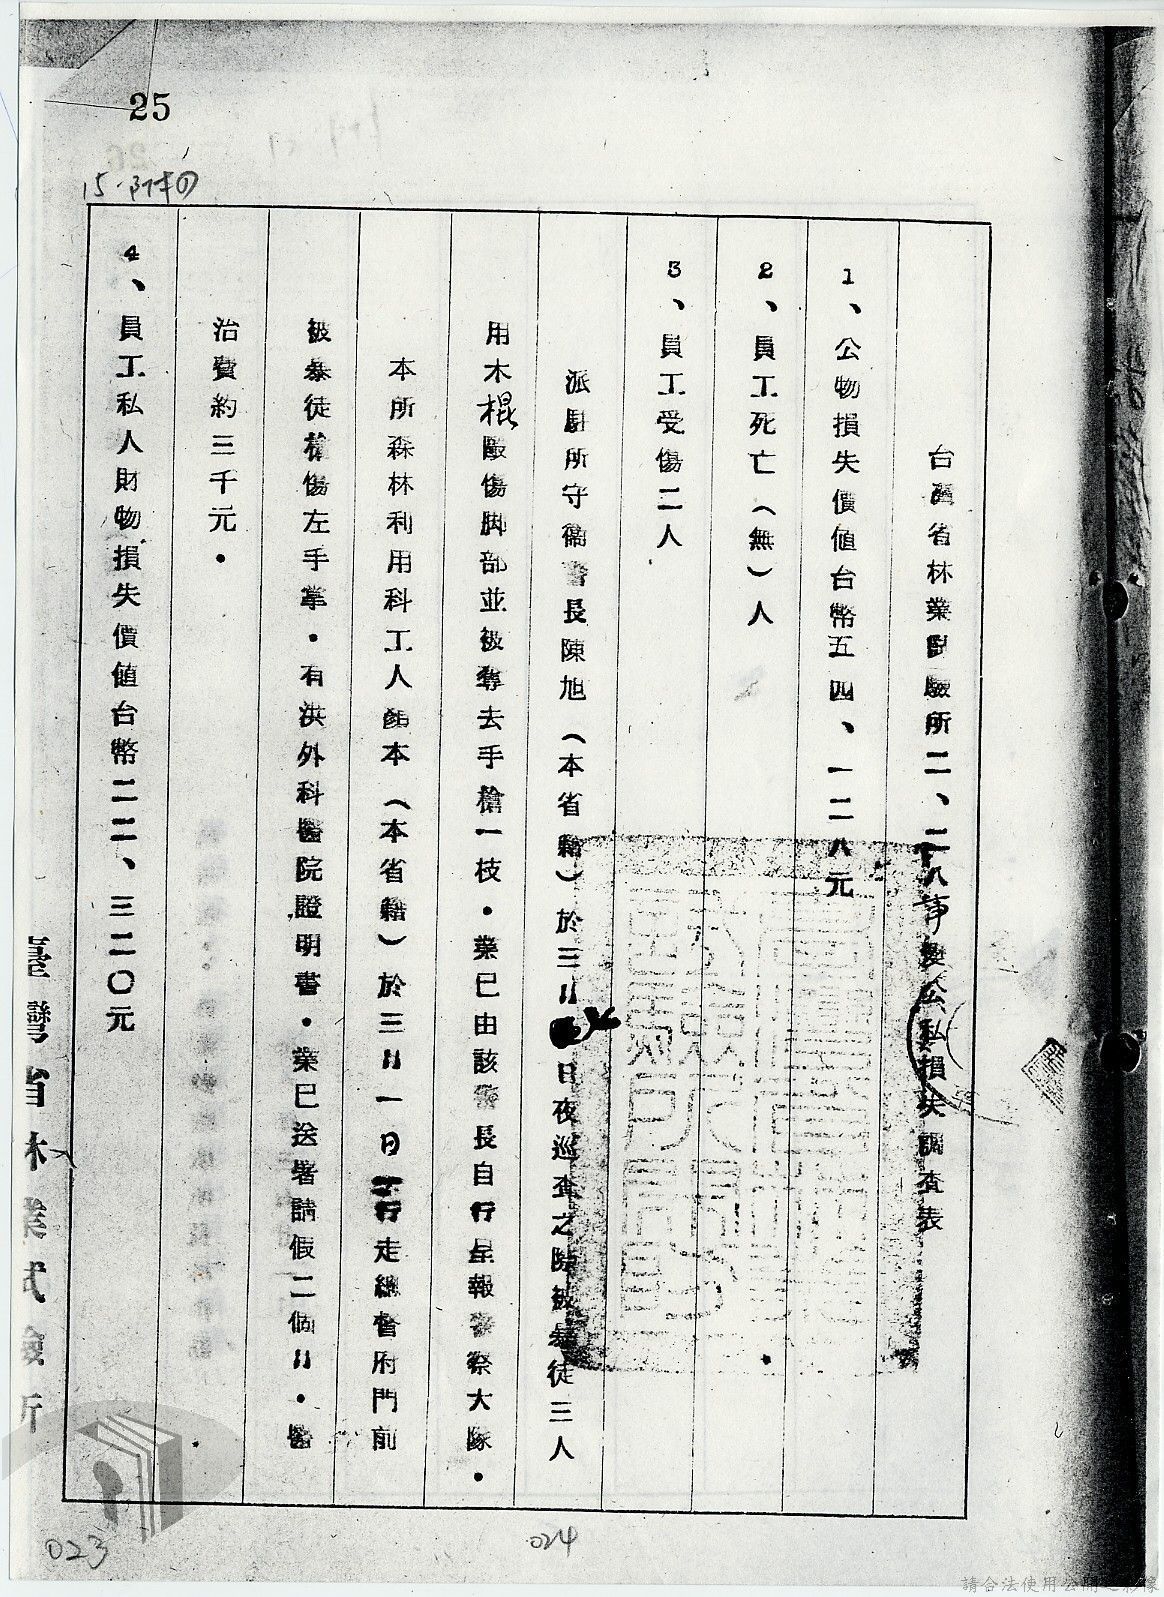 25
15.附件(1)
台灣省林業試驗所二、二八事變公私損失調查表
1、公物損失價值台幣五四、一二八元
2、員工死亡(無)人
3、員工受傷二人
派駐所守衛警長陳旭(本省籍)於三月 日夜巡查之際被暴徒三人
用木棍毆傷脚部並被奪去手槍一枝.業已由該警長自行呈報警察大隊.
本所森林利用科工人 本(本省籍)於三月一日行走總督府門前
被暴徒槍傷左手掌.有洪外科醫院證明書.業已送署請假二個月.醫
治費約三千元.
4、員工私人財物損失價值台幣二二、三二〇元
臺灣省林業試驗所
023
024
請合法使用公開之影像